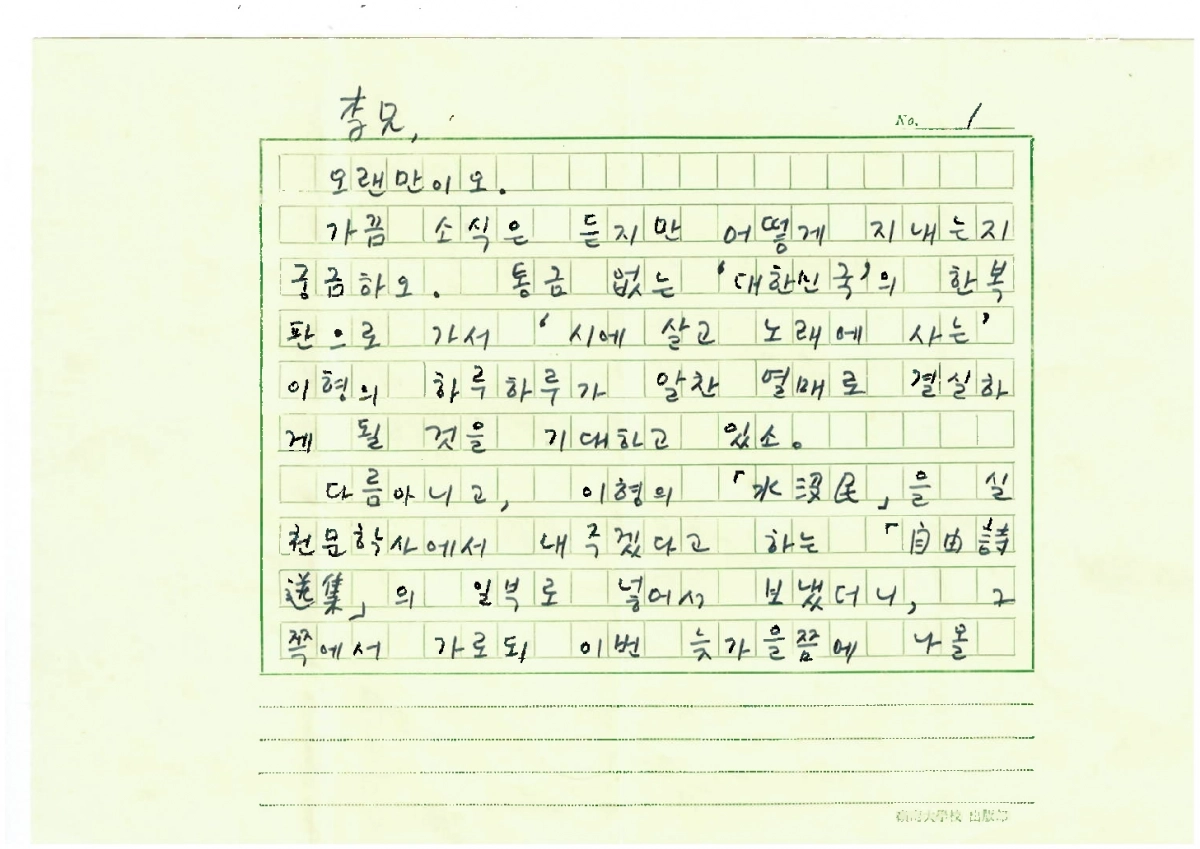 李兄,
No. 1
오랜만이오.
가끔 소식은 듣지만 어떻게 지내는지
궁금하오. 통금 없는 ‘대한신국’의 한복
판으로 가서 ‘시에 살고 노래에 사는’
이형의 하루하루가 알찬 열매로 결실하
게 될 것을 기대하고 있소.
다름아니고, 이형의 「水沒民」을 실
천문학사에서 내 주겠다고 하는 「自由詩
選集」의 일부로 넣어서 보냈더니, 그
쪽에서 가로되 이번 늦가을쯤에 나올
嶺南大學校 出版部